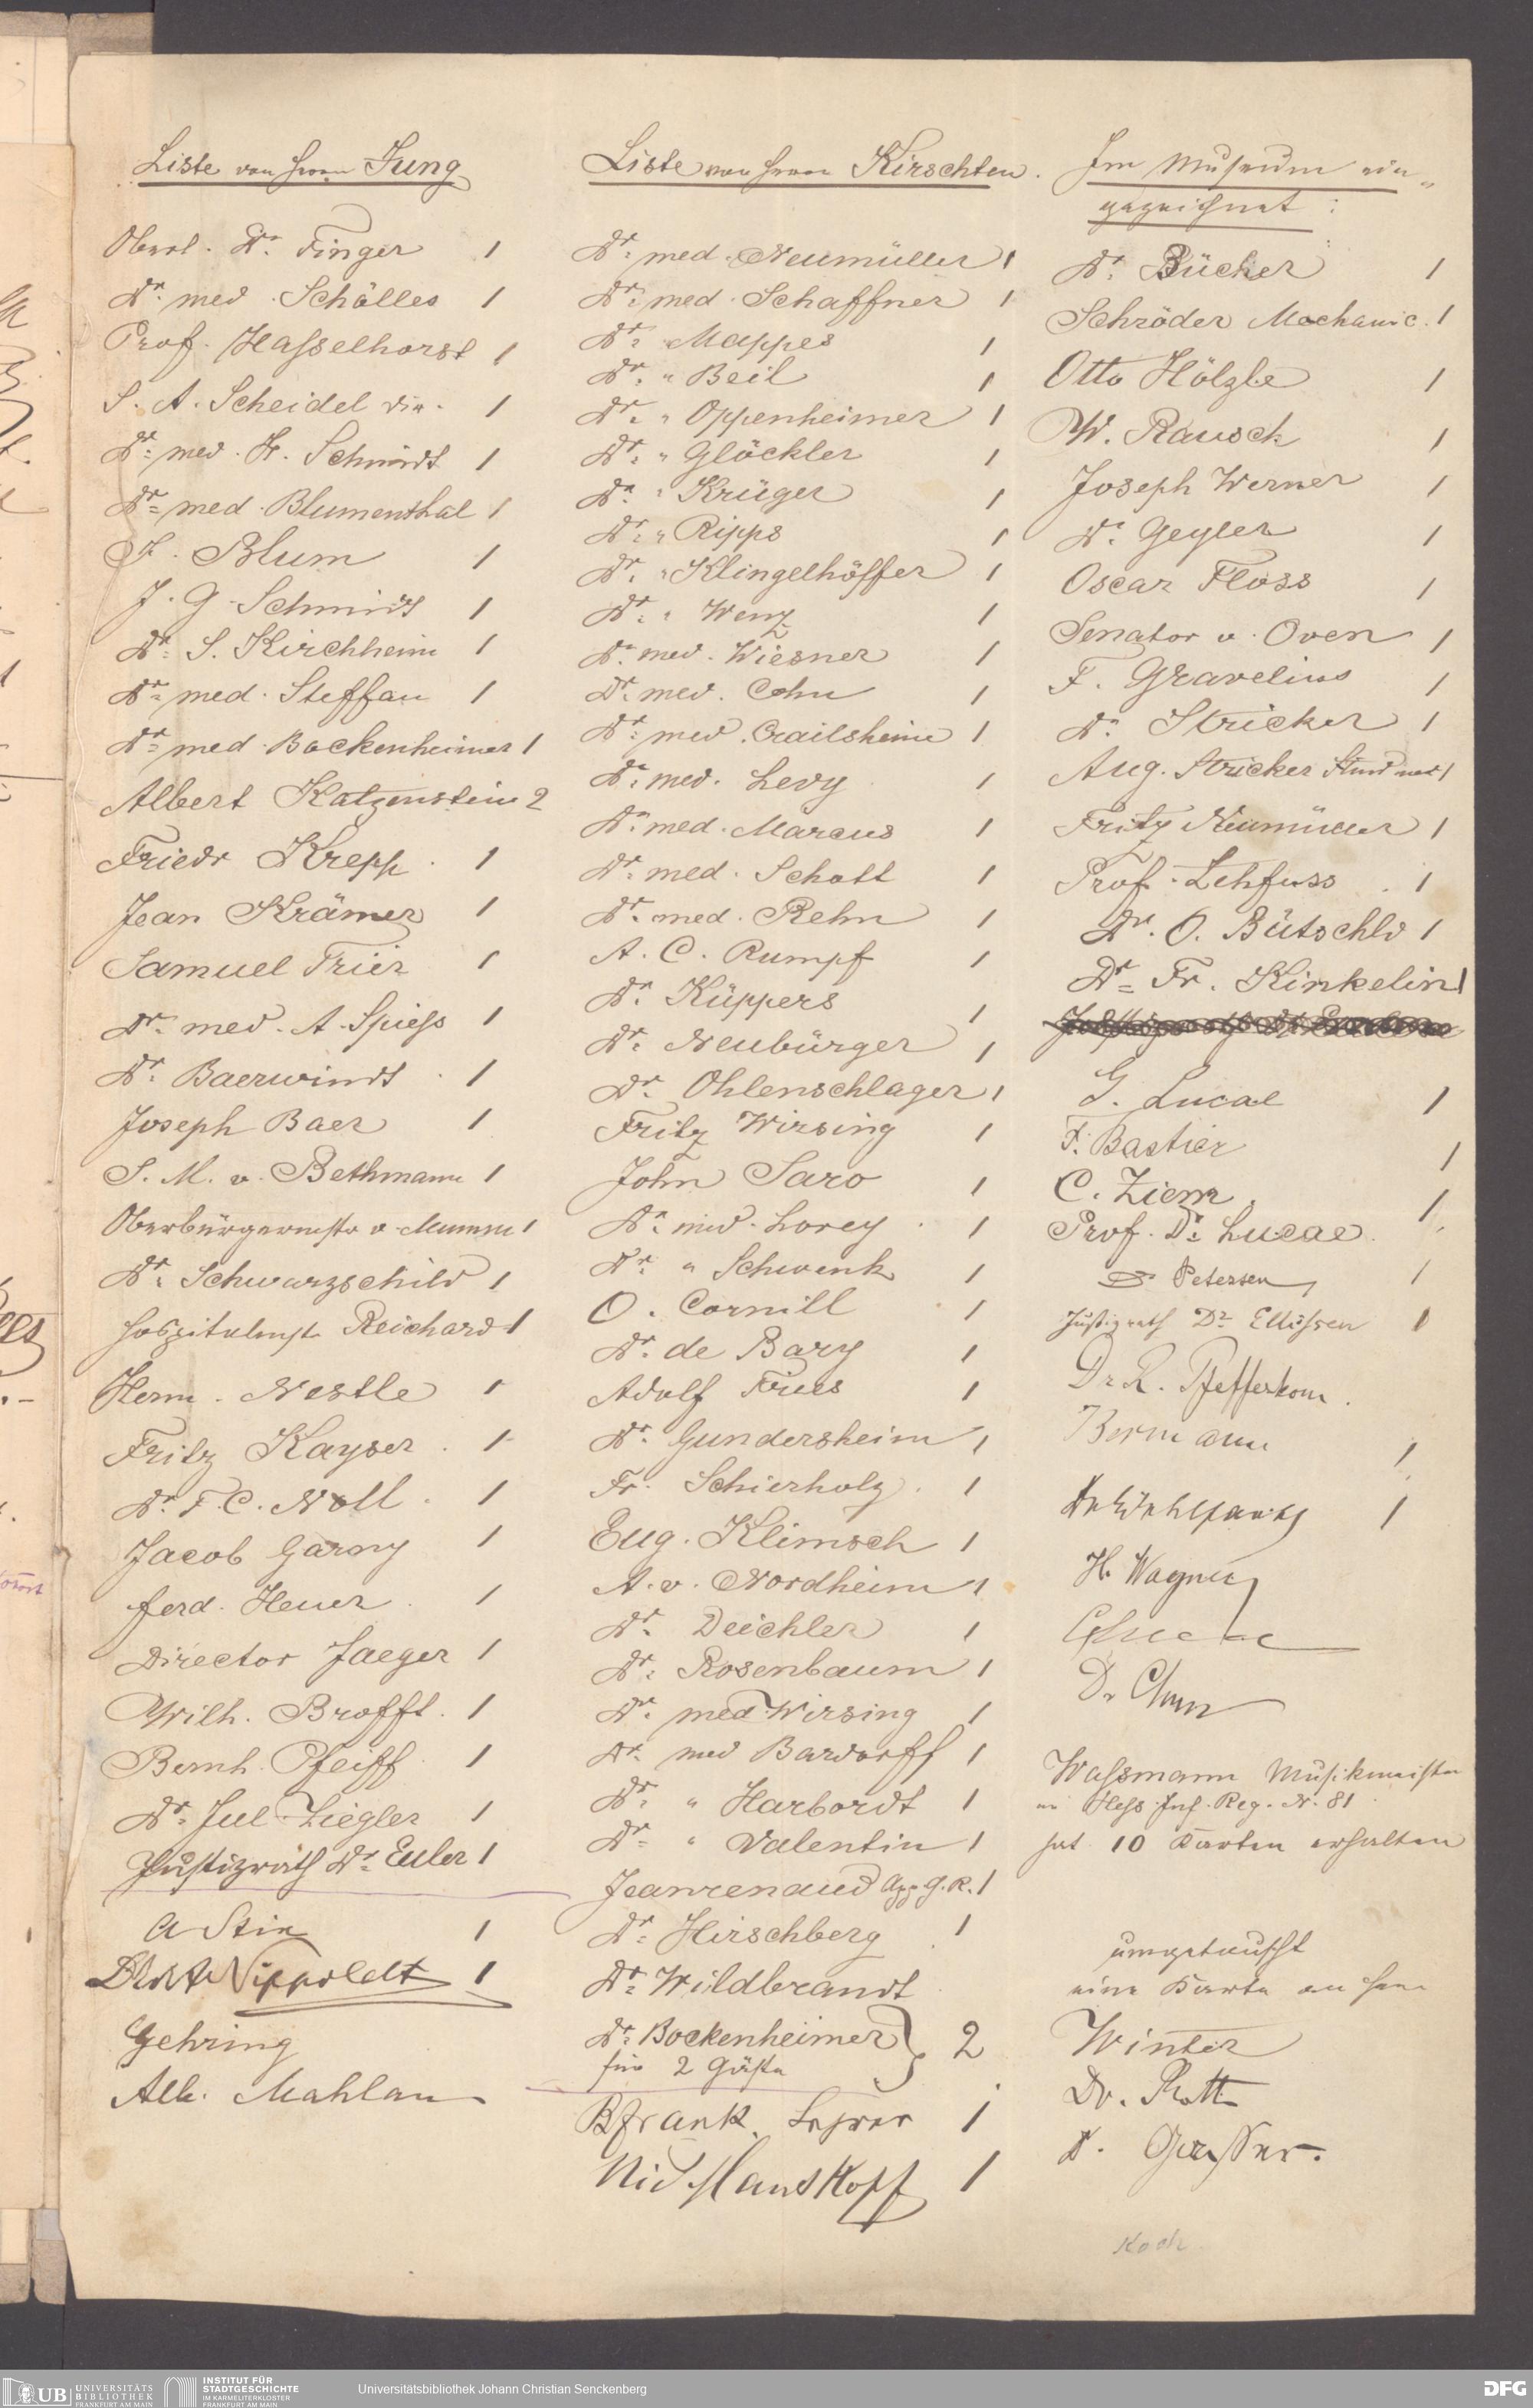 Liste von Herrn Jung
Oberl. Dr. Finger 1
Dr. med. Schölles 1
Prof. Hasselhorst 1
S. A. Scheidel 1
Dr. med. H. Schmidt 1
Dr. med. Blumenthal 1
F. Blum 1
J. G. Schmidt 1
Dr. S. Kirchheim 1
Dr. med. Steffan 1
Dr. med. Bockenheimer 1
Albert Katzenstein 2
Friedr Krepp 1
Jean Krämer 1
Samuel Trier 1
Dr. med. A. Spiess 1
Dr. Baerwindt 1
Joseph Baer 1
S. M. v. Bethmann 1
Oberbürgermstr v. Mumm 1
Dr. Schwarzschild 1
Hospitalmstr Reichard 1
Herm. Nestle 1
Fritz Kayser 1
Dr. F. C. Noll 1
Jacob Garny 1
Ferd. Heuer 1
Director Jaeger 1
Wilh. Brofft 1
Bernh. Pfeiff 1
Dr. Jul. Ziegler 1
Justizrath Dr. Euler 1
1
Nippoldt 1
Gehring
Alb. Mahlau
Liste von Herrn Kirschten.
Dr. med. Neumüller 1
Dr. med. Schaffner 1
Dr. Mappes 1
Dr. " Beil 1
Dr. " Oppenheimer 1
Dr. " Glöckler 1
Dr. " Krüger 1
Dr. " Ripps 1
Dr. " Klingelhöffer 1
Dr. " Wenz 1
Dr. med. Wiesner 1
Dr. med. Cohn 1
Dr. med. Crailsheim 1
Dr. med. Levy 1
Dr. med. Marcus 1
Dr. med. Schott 1
Dr. med. Rehn 1
A. C. Rumpf 1
Dr. Küppers 1
Dr. Neubürger 1
Dr. Ohlenschlager 1
Fritz Wirsing 1
John Saro 1
Dr. med. Lorey 1
Dr. " Schwenk 1
O. Cornill 1
Dr. de Bary 1
Adolf Fries 1
Dr. Gundersheim 1
Fr. Schierholz 1
Eug. Klimsch 1
A. v. Nordheim 1
Dr. Deichler 1
Dr. Rosenbaum 1
Dr. med. Wirsing 1
Dr. med Bardorff 1
Dr. " Harbordt 1
Dr. " Valentin 1
Jeanrenaud App. G. R. 1
Dr. Hirschberg 1
Dr. Wildbrandt
Dr. Bockenheimer } 2
für 2 Gäste
B Frank. Lehrer 1
Manskopf 1
Im Museum ein-
gezeichnet:
Dr. Bücher 1
Schröder Mechanic. 1
Otto Hölzle 1
W. Rausch 1
Joseph Werner 1
Dr. Geyler 1
Oscar Floss 1
Senator v. Oven 1
F. Gravelius 1
Dr. Stricker 1
Aug. Stricker Stud med 1
Fritz Neumüller 1
Prof. Lehfuss 1
Dr. O. Bütschli 1
Dr. Fr. Kinkelin 1
G. Lucae 1
F. Bastier 1
C. Ziem 1
Prof. Dr. Lucae
Dr. Petersen 1
Justizrath Dr. Ellissen 1
Dr R. Pfefferkorn
Bermann 1
1
H. Wagner
Dr Chun
Wassmann Musikmeister
im Hess. Inf. Reg. N. 81
hat 10 Karten erhalten
umgetauscht
eine Karte an Herrn
Winter
Dr. Rott
Dr. Gasser.
Koch
UB UNIVERSITÄTS
BIBLIOTHEK
FRANKFURT AM MAIN
INSTITUT FÜR
STADTGESCHICHTE
IM KARMELITERKLOSTER
FRANKFURT AM MAIN
Universitätsbibliothek Johann Christian Senckenberg
DFG